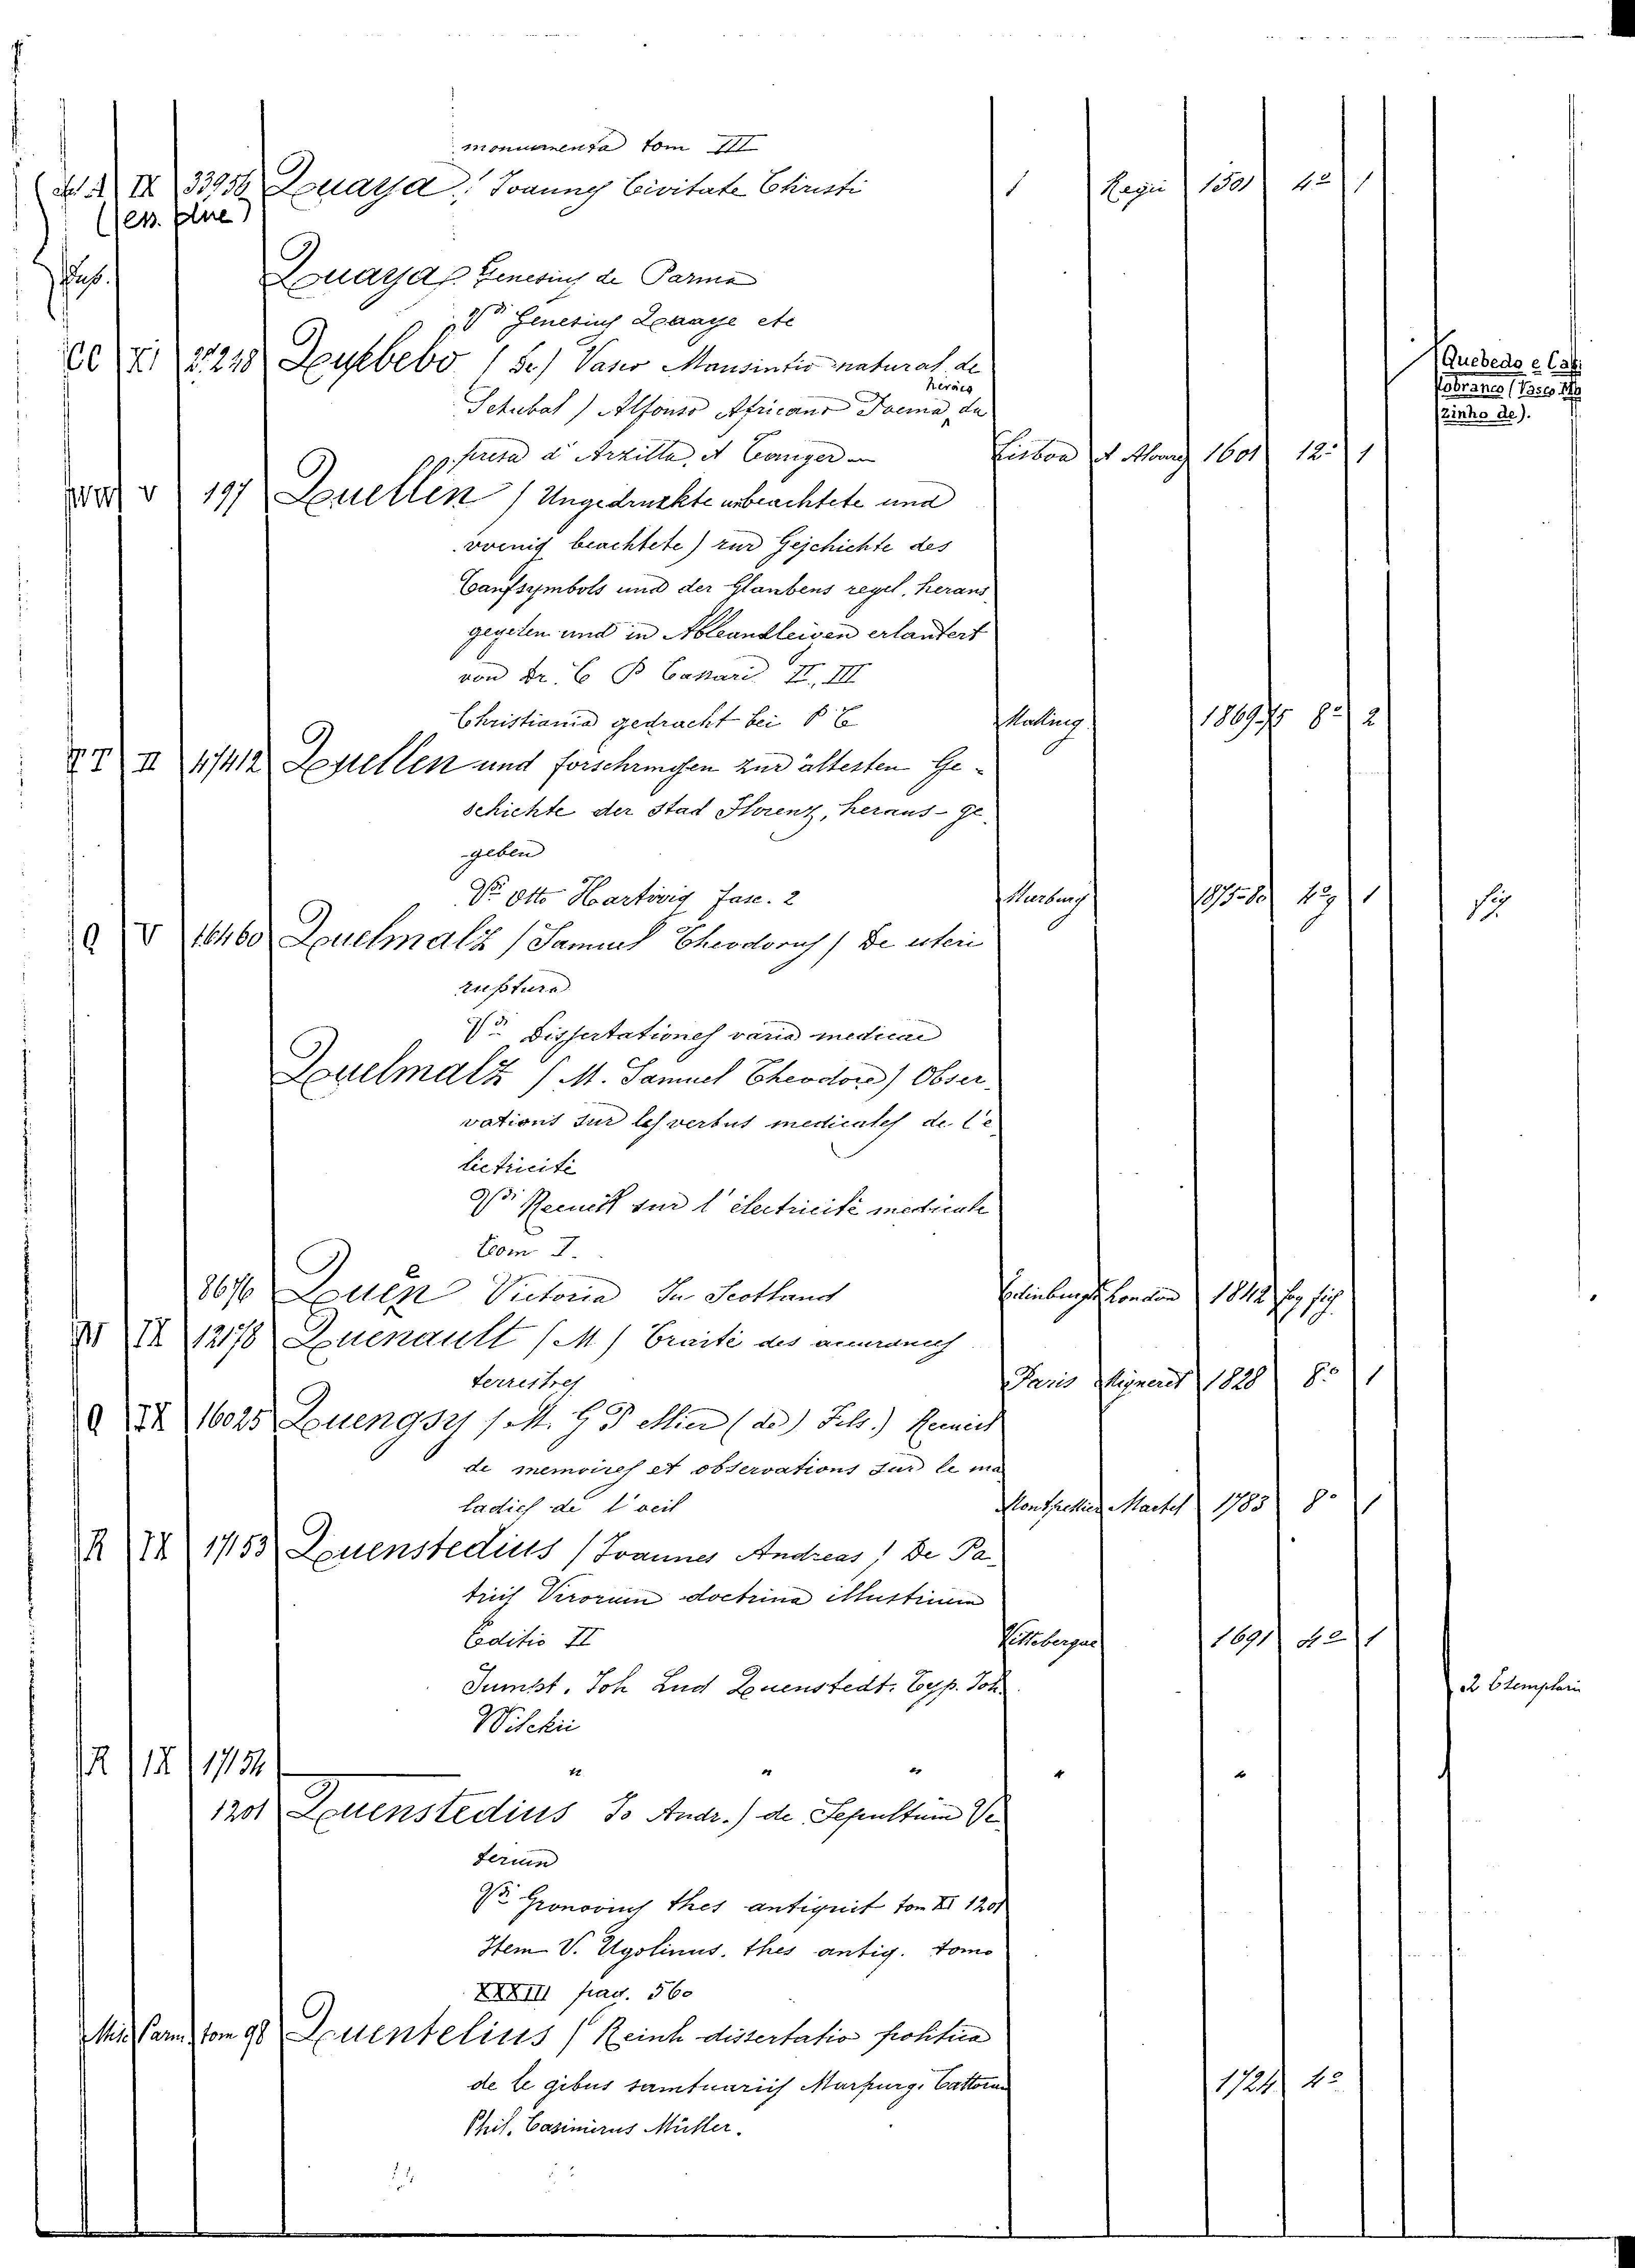 monumenta tom III
IX 33956 Quaya, Joannes Civitate Christi 1 Regii 1501 4º 1
Quaya, Genesius de Parma
Vᵈⁱ Genesius Quaye etc
CC XI 25218 Quebebo (De) Vasco Mausintio natural de
Setubal) Alfonso Africano Poema heroico da
presa d'Arzilla, et Tanger Lisboa A Alvarez 1601 12º 1
V 197 Quellen (Ungedruckte unbeachtete und
wenig beachtete) zur Geschichte des
Taufsymbols und der Glaubens regel, heraus
gegeben und in Abhandleiven erlautert
von Dr. C P Caspari II, III
Christiania gedracht bei P T Malling 1869-75 8º 2
II 47412 Quellen und forschungen zur ältesten Ge-
schichte der Stad Florenz, heraus-ge
-geben
Vᵒⁿ Otto Hartwig fasc. 2 Marburg 1875-80 4º 1
Q V 16460 Quelmalz (Samuel Theodorus) De uteri
ruptura
Vᵈⁱ Dissertationes varia medicae
Quelmalz (M. Samuel Theodore) Obser-
vations sur les vertus medicales de l'e
lictricité
Vᵈⁱ Recueil sur l'électricité medicale
tom I.
8676 Queen Victoria In Scotland Edinburgh London 1842
IX 12178 Quenault (M) Traité des assurances
terrestres Paris Migneret 1828 8º 1
Q IX 16025 Quengsy (M. G P Mier (de) Fils.) Recueil
de memoires et observations sur le ma
ladies de l'oeil Montpellier Martel 1783 8º 1
R IX 17153 Quenstedius (Joannes Andreas) De Pa-
triis Virorum doctrina illustrium
Editio II Vitteberque 1691 4º 1
Sumpt. Joh Lud Quenstedt. Typ. Joh.
Wilckii
2 Esemplari
R IX 17154 " " " " "
1201 Quenstedius Jo Andr.) de Sepultum Ve
terum
Vᵈⁱ Gronovius thes antiquit tom XI 1201
Item V. Ugolinus. thes antiq. tomo
XXXIII pag. 560
Mis Parm tom 98 Quentelius (Reinh dissertatio politica
de le gibus samtuariis Marpurg. Cattorum 1724 4º
Phil. Casimirus Müller.
Quebedo e Cas
tobranco (Vasco Mo
zinho de).